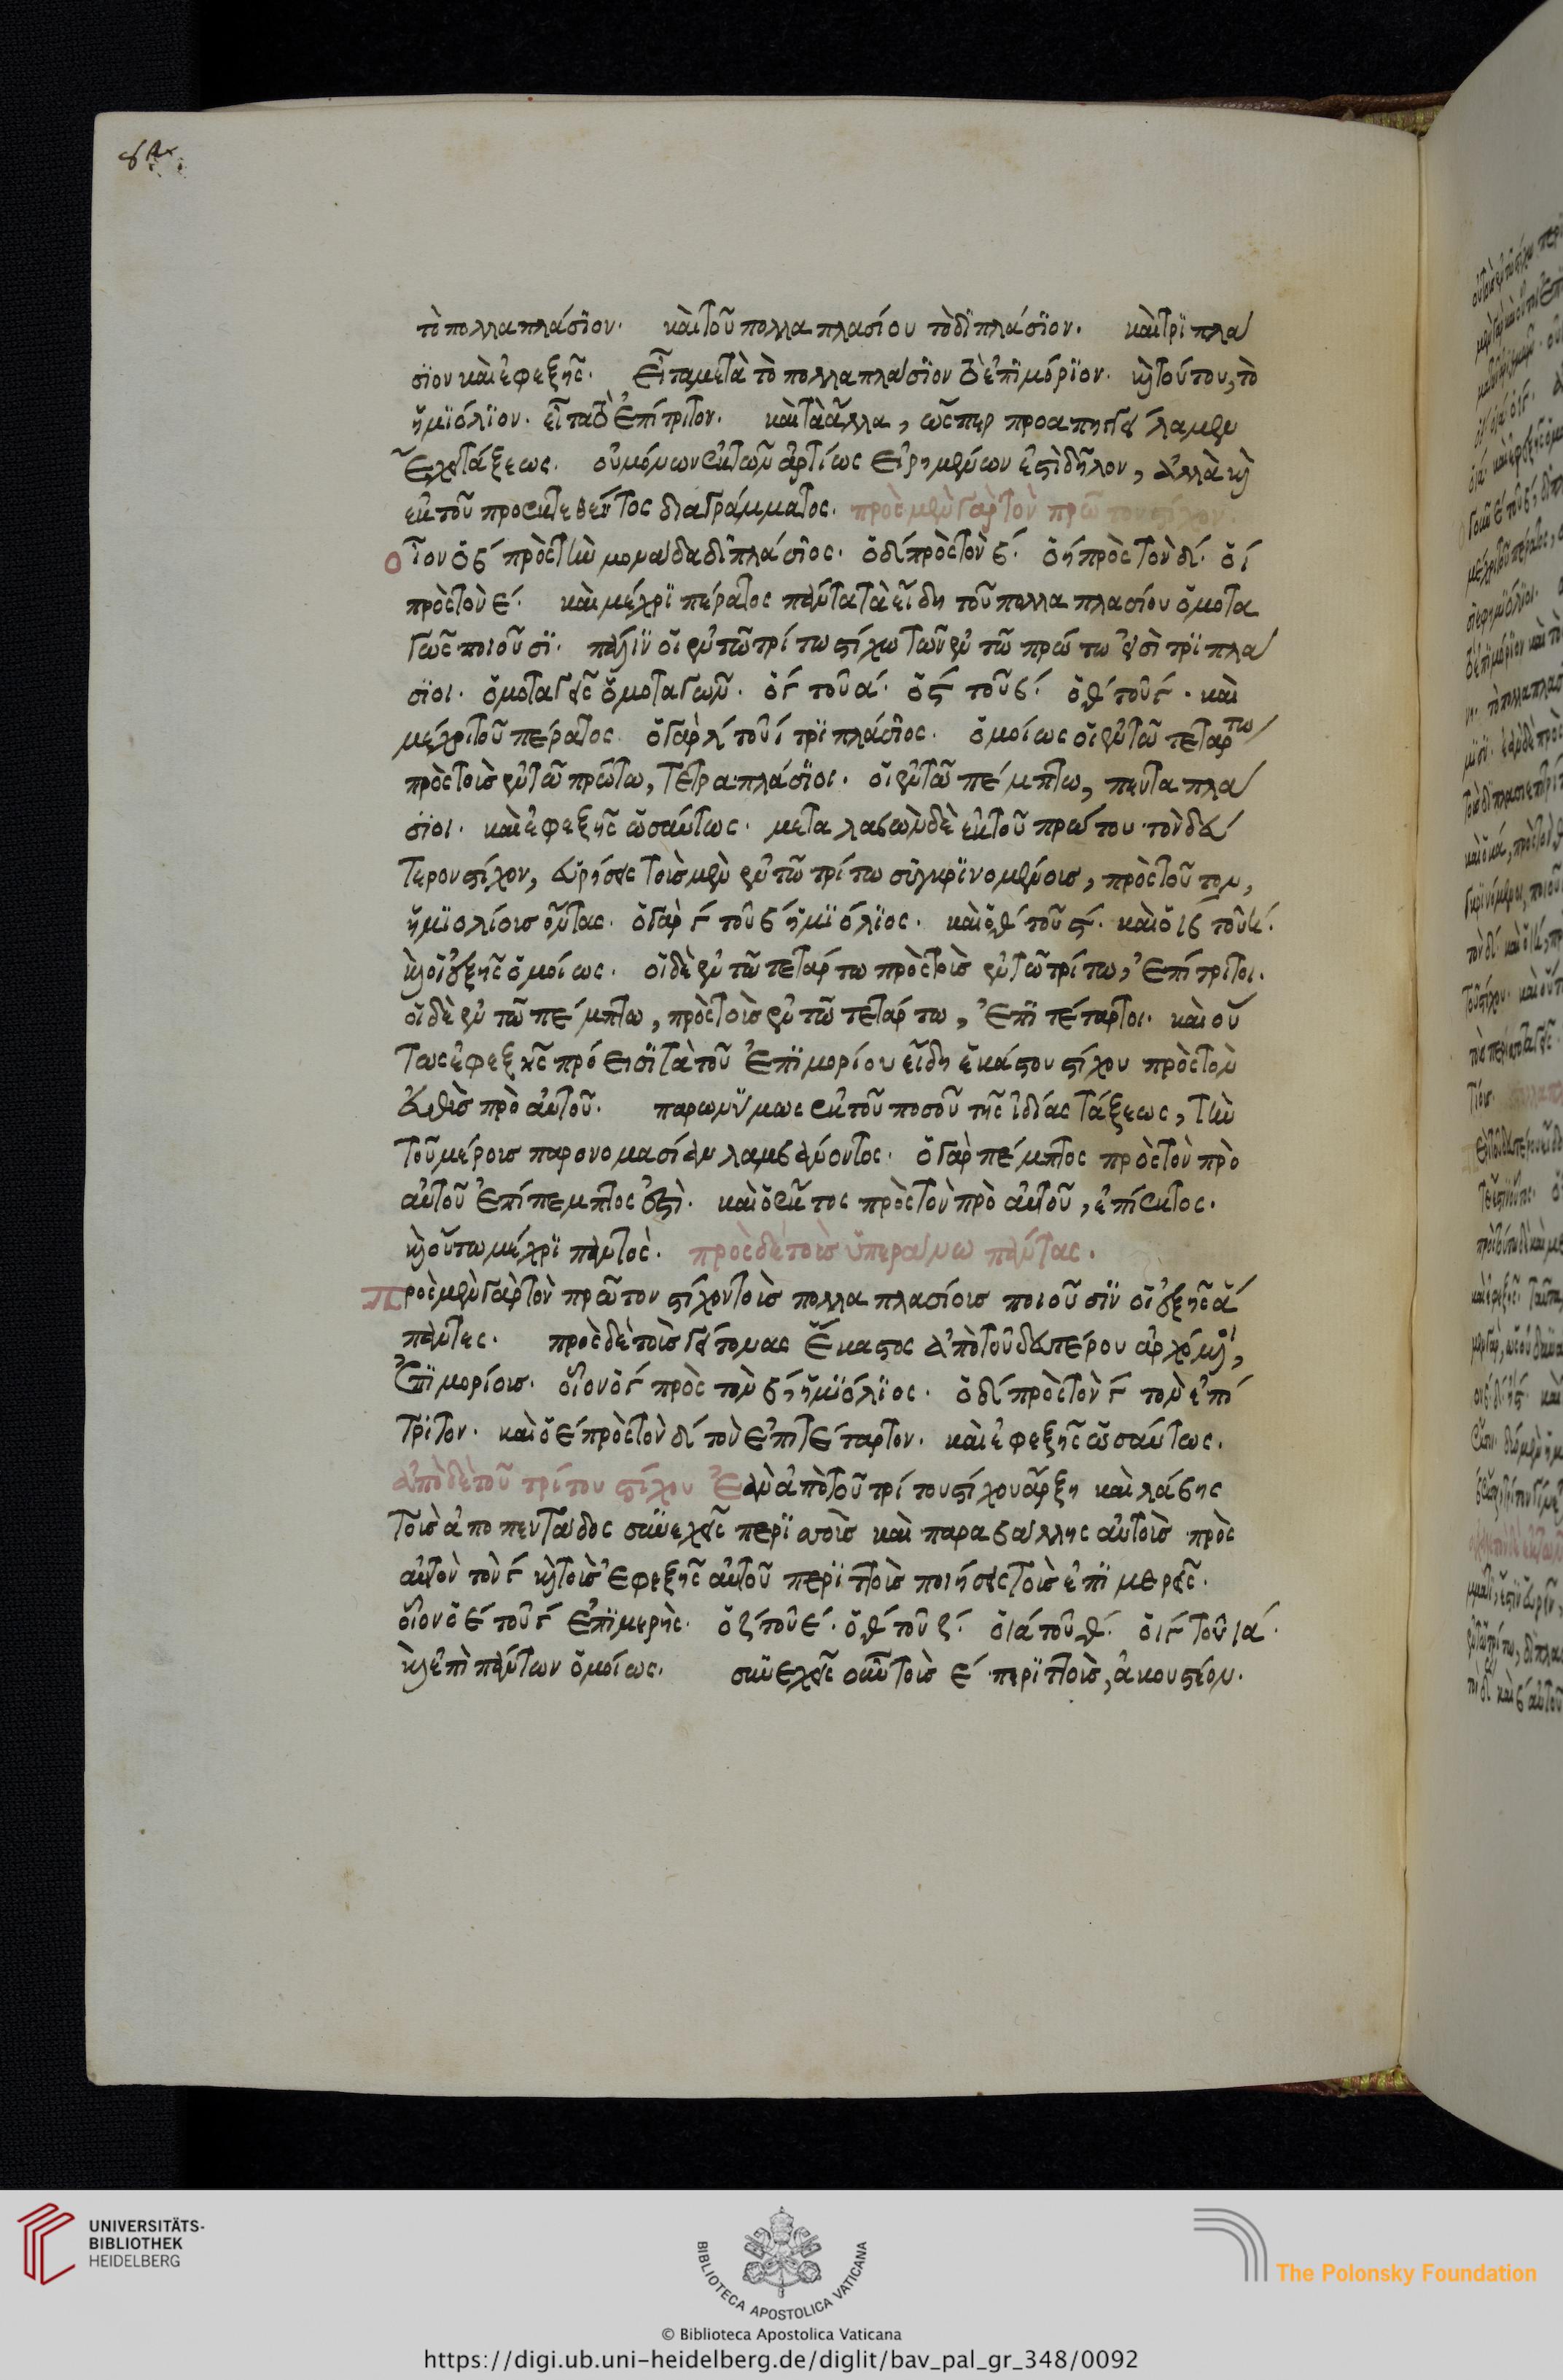 τὸ πολλαπλάσϊον. καὶ τοῦ πολλαπλασίου τὸ δϊπλάσϊον. καὶ τρϊπλα
σϊον καὶ ἐφεξῆς. Εἶτα μετὰ τὸ πολλαπλάσϊον τὸ ἐπϊμόρϊον. κỳ τούτου, τὸ
ἡμϊόλϊον. εἶτα τὸ Ἐπίτριτον. καὶ τὰ ἄλλα, ὥσπερ
τάξεως. οὐ μόνων ἐκ τῶν ἀρτίως Εἰρημένων ἐστὶ δῆλον, ἀλλὰ κỳ
ἐκ τοῦ προεκτεθέντος διαγράμματος. πρὸς μὲν γὰρ τὸν πρῶτον στίχον
Οἷον ὁ β΄ πρὸς τὴν μονάδα διπλάσϊος. ὁ δ΄ πρὸς τὸν β΄. ὁ ή πρὸς τὸν δ΄. ὁ ί
πρὸς τὸν ε΄. καὶ μέχρϊ πέρατος πάντα τὰ εἴδη τοῦ πολλαπλασίου ὁμοτα
γῶς ποιοῦσϊ. πάλϊν οἱ ἐν τῶ τρίτω στίχω τῶν ἐν τῶ πρώτω εἰσὶ τρϊπλα
σϊοι. ὁμοταγεῖς ὁμοταγῶν. ὁ γ΄ τοῦ α΄. ὁ ς΄ τοῦ β΄. ὁ θ΄ τοῦ γ΄. καὶ
μέχρι τοῦ πέρατος. ὁ γὰρ λ΄ τοῦ ί τρϊπλάσϊος. ὁμοίως οἱ ἐν τῶ τετάρτω
πρὸς τοὺς ἐν τῶ πρώτω, Τετραπλάσϊοι. οἱ ἐν τῶ πέμπτω, πενταπλα
σϊοι. καὶ ἐφεξῆς ὡσαύτως. μεταλαβὼν δὲ ἐκ τοῦ πρώτου τὸν δεύ
τερον στίχον, εὑρήσεις τοὺς μὲν ἐν τῶ τρίτω συγκρϊνομένους, πρὸς τοῦτον,
ἡμϊολίους ὄντας. ὁ γὰρ γ΄ τοῦ β΄ ἡμϊόλϊος. καὶ ὁ θ΄ τοῦ ς΄. καὶ ὁ ιβ τοῦ
κỳ οἱ ἑξῆς ὁμοίως. οἱ δὲ ἐν τῶ τετάρτω πρὸς τοὺς ἐν τῶ τρίτω, Ἐπίτριτοι.
οἱ δὲ ἐν τῶ πέμπτω, πρὸς τοὺς ἐν τῶ τετάρτω, Ἐπϊτέταρτοι. καὶ οὕ
τως ἐφεξῆς πρόεισϊ τὰ τοῦ Ἐπϊμορίου εἴδη ἑκάστου στίχου πρὸς τὸν
εὐθὺς πρὸ αὐτοῦ. παρωνύμως ἐκ τοῦ ποσοῦ τῆς ἰδίας τάξεως, τὴν
τοῦ μέρους παρονομασίαν λαμβάνοντος. ὁ γὰρ πέμπτος πρὸς τὸν πρὸ
αὐτοῦ Ἐπίπεμπτος ἐστὶ. καὶ ὁ ἕκτος πρὸς τὸν πρὸ αὐτοῦ, ἐπίεκτος.
κỳ οὕτω μέχρϊ παντός. πρὸς δὲ τοὺς ὑπεράνω πάντας.
Πρὸς μὲν γὰρ τὸν πρῶτον στίχον τοὺς πολλαπλασίους ποιοῦσϊν οἱ ἑξῆς ἅ
παντες. πρὸς δὲ τοὺς γείτονας Ἕκαστος ἀπὸ τοῦ δευτέρου ἀρχόμενοι,
Ἐπϊμορίους. οἷον ὁ γ΄ πρὸς τὸν β΄, ἡμϊόλϊος. ὁ δ΄ πρὸς τὸν γ΄ τὸν ἐπί
τρϊτον. καὶ ὁ ε΄ πρὸς τὸν δ΄ τὸν ἐπιτέταρτον. καὶ ἐφεξῆς ὡσαύτως.
ἀπὸ δὲ τοῦ τρίτου στίχου Ἐὰν ἀπὸ τοῦ τρίτου στίχου ἄρξη καὶ λάβης
τοὺς ἀπο πεντάδος συνεχεῖς περϊττοὺς καὶ παραβάλλης αὐτοὺς πρὸς
αὐτὸν τὸν γ΄ κỳ τοὺς ἐφεξῆς αὐτοῦ περϊττοὺς ποιήσεις τοὺς ἐπϊμερεῖς.
οἷον ὁ ε΄ τοῦ γ΄ Ἐπϊμερὴς. ὁ ζ΄ τοῦ ε΄. ὁ θ΄ τοῦ ζ΄. ὁ ιά τοῦ θ΄. ὁ ιγ΄ τοῦ ιά.
κỳ ἐπὶ πάντων ὁμοίως. συνεχεῖς οὖν τοὺς ε΄ περϊττοὺς, ἀκουστέον.
UNIVERSITÄTS-
BIBLIOTHEK
HEIDELBERG
BIBLIOTECA APOSTOLICA VATICANA
The Polonsky Foundation
© Biblioteca Apostolica Vaticana
https://digi.ub.uni-heidelberg.de/diglit/bav_pal_gr_348/0092